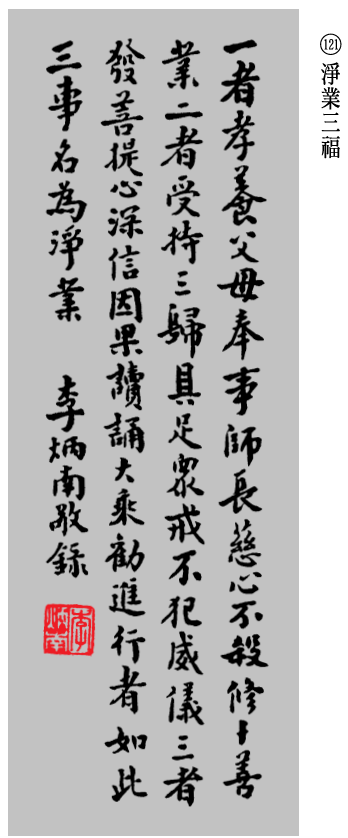 (121) 淨業三福
一者孝養父母奉事師長慈心不殺修十善
業二者受持三歸具足眾戒不犯威儀三者
發菩提心深信因果讀誦大乘勸進行者如此
三事名為淨業 李炳南敬錄
李炳南